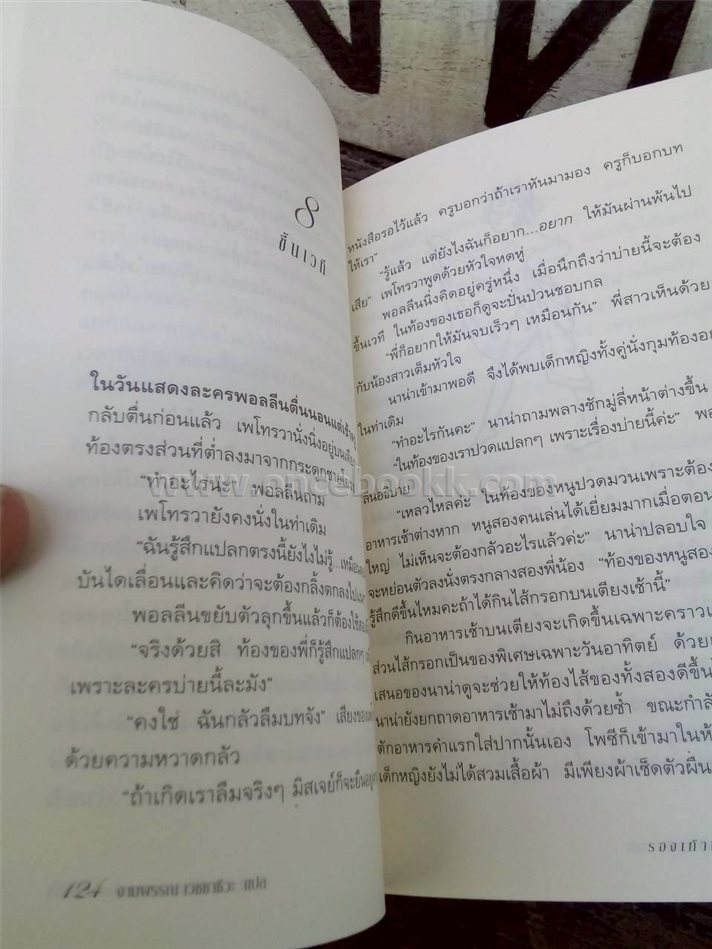 8
ขึ้นเวที
ในวันแสดงละครพอลลีนตื่นนอนแต่เช้า
กลับตื่นก่อนแล้ว เพโทรวานั่งนิ่งอยู่บนเตียง
ท้องตรงส่วนที่ต่ำลงมาจากกระดูก
“ทำอะไรน่ะ” พอลลีนถาม
เพโทรวายังคงนั่งในท่าเดิม
“ฉันรู้สึกแปลกตรงนี้ยังไงไม่รู้...เหมือน
บันไดเลื่อนและคิดว่าจะต้องกลิ้งตกลงไป
พอลลีนขยับตัวลุกขึ้นแล้วก็ต้องใช้
“จริงด้วยสิ ท้องของพี่ก็รู้สึกแปลกๆ
เพราะละครบ่ายนี้ละมัง”
“คงใช่ ฉันกลัวลืมบทจัง” เสียงของ
ด้วยความหวาดกลัว
“ถ้าเกิดเราลืมจริงๆ มิสเจย์ก็จะยืน
124 งามพรรณ เวชชาชีวะ แปล
หนังสือรอไว้แล้ว ครูบอกว่าถ้าเราหันมามอง ครูก็บอกบท
ให้เรา”
“รู้แล้ว แต่ยังไงฉันก็อยาก...อยาก ให้มันผ่านพ้นไป
เสีย” เพโทรวาพูดด้วยหัวใจหดหู่
พอลลีนนิ่งคิดอยู่ครู่หนึ่ง เมื่อนึกถึงว่าบ่ายนี้จะต้อง
ขึ้นเวที ในท้องของเธอก็ดูจะปั่นป่วนชอบกล
“พี่ก็อยากให้มันจบเร็วๆ เหมือนกัน” พี่สาวเห็นด้วย
กับน้องสาวเต็มหัวใจ
นาน่าเข้ามาพอดี จึงได้พบเด็กหญิงทั้งคู่นั่งกุมท้องอยู่
ในท่าเดิม
“ทำอะไรกันคะ” นาน่าถามพลางชักมู่ลี่หน้าต่างขึ้น
“ในท้องของเราปวดแปลกๆ เพราะเรื่องบ่ายนี้ค่ะ” พอ
ลีนอธิบาย
“เหลวไหลค่ะ ในท้องของหนูปวดมวนเพราะต้อง
อาหารเช้าต่างหาก หนูสองคนเล่นได้เยี่ยมมากเมื่อตอน
ใหญ่ ไม่เห็นจะต้องกลัวอะไรแล้วค่ะ” นาน่าปลอบใจ
จะหย่อนตัวลงนั่งตรงกลางสองพี่น้อง “ท้องของหนูสอง
รู้สึกดีขึ้นไหมคะถ้าได้กินไส้กรอกบนเตียงเช้านี้”
กินอาหารเช้าบนเตียงจะเกิดขึ้นเฉพาะคราว
ส่วนไส้กรอกเป็นของพิเศษเฉพาะวันอาทิตย์ ด้วย
เสนอของนาน่าดูจะช่วยให้ท้องไส้ของทั้งสองดีขึ้น
นาน่ายังยกถาดอาหารเช้ามาไม่ถึงด้วยซ้ำ ขณะกำลัง
ตักอาหารคำแรกใส่ปากนั้นเอง โพซีก็เข้ามาในห้
เด็กหญิงยังไม่ได้สวมเสื้อผ้า มีเพียงผ้าเช็ดตัวผืน
รองเท้า
www.oncebookk.com